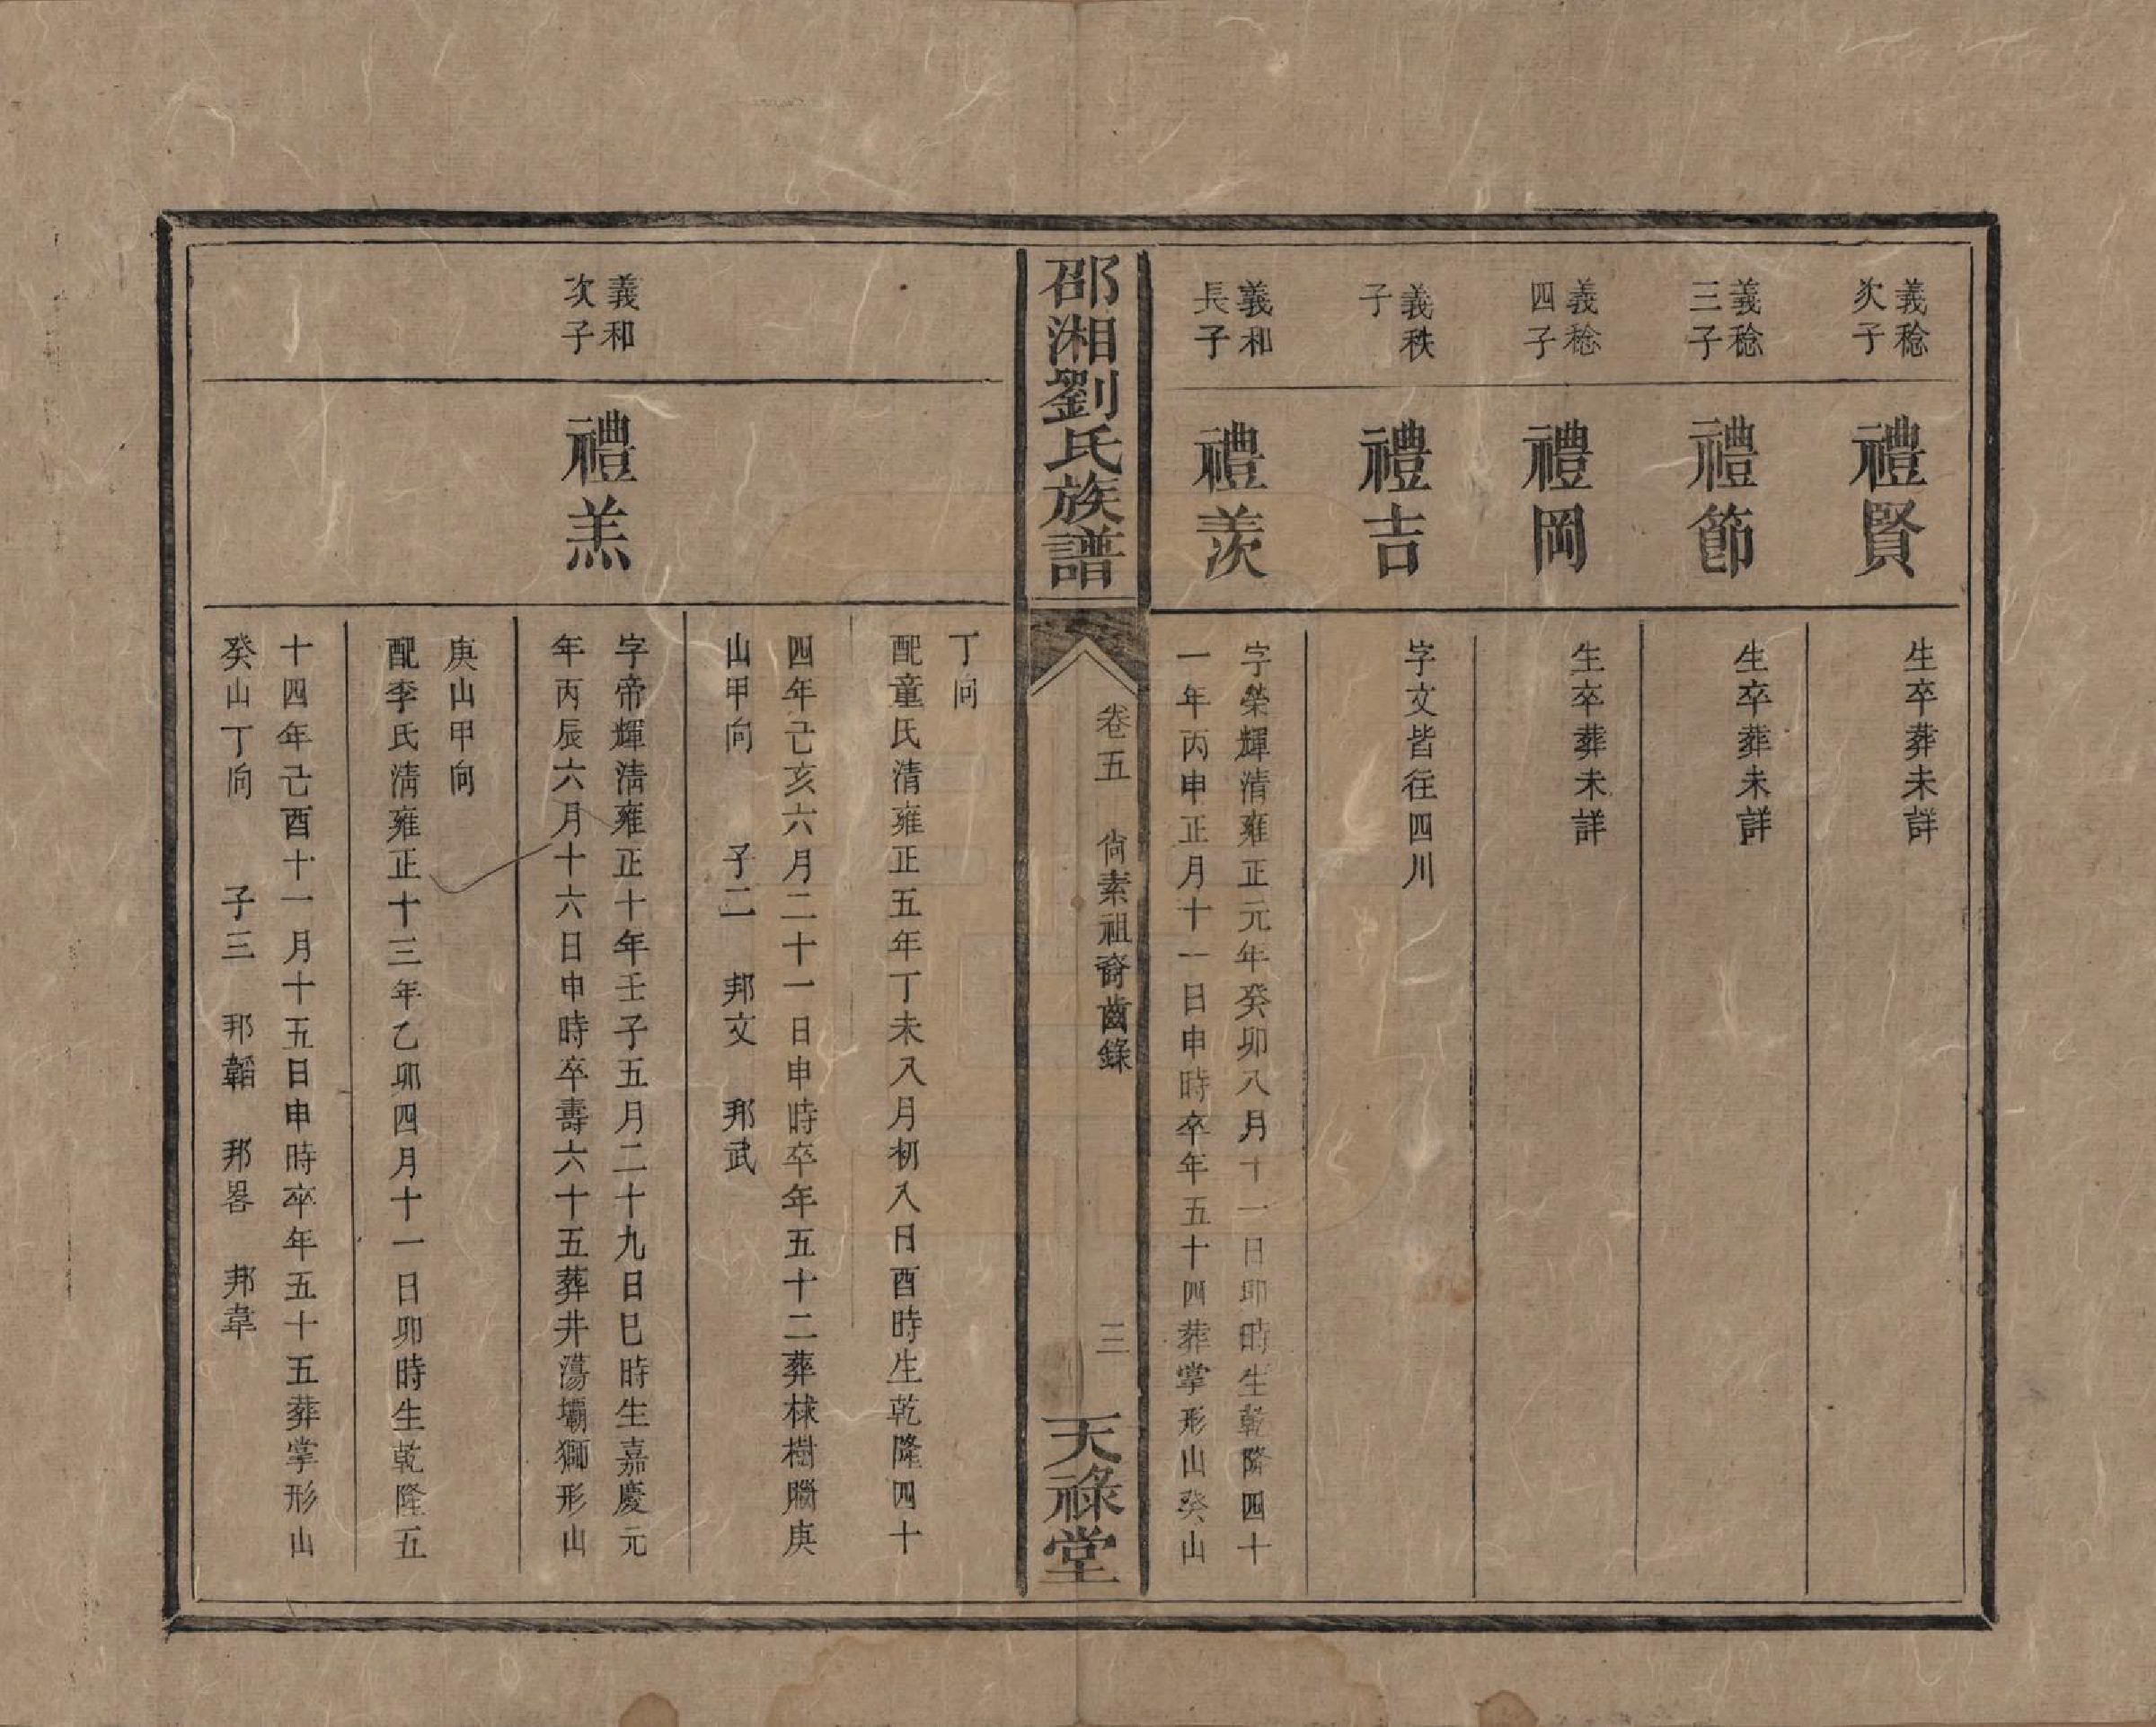 義稔
次子
禮賢
生卒葬未詳
義稔
三子
禮節
生卒葬未詳
義稔
四子
禮岡
生卒葬未詳
義秩
子
禮吉
字文皆往四川
義和
長子
禮羨
字榮輝清雍正元年癸卯八月十一日卯時生乾隆四十
一年丙申正月十一日申時卒年五十四葬掌形山癸山
邵湘劉氏族譜
卷五　尙素祖裔齒錄
三
天祿堂
丁向
配童氏清雍正五年丁未八月初八日酉時生乾隆四十
四年己亥六月二十一日申時卒年五十二葬梂樹腦庚
山甲向　子二　邦文　邦武
義和
次子
禮羔
字帝輝清雍正十年壬子五月二十九日巳時生嘉慶元
年丙辰六月十六日申時卒壽六十五葬井蕩壩獅形山
庚山甲向
配李氏清雍正十三年乙卯四月十一日卯時生乾隆五
十四年己酉十一月十五日申時卒年五十五葬掌形山
癸山丁向　子三　邦韜　邦畧　邦韋